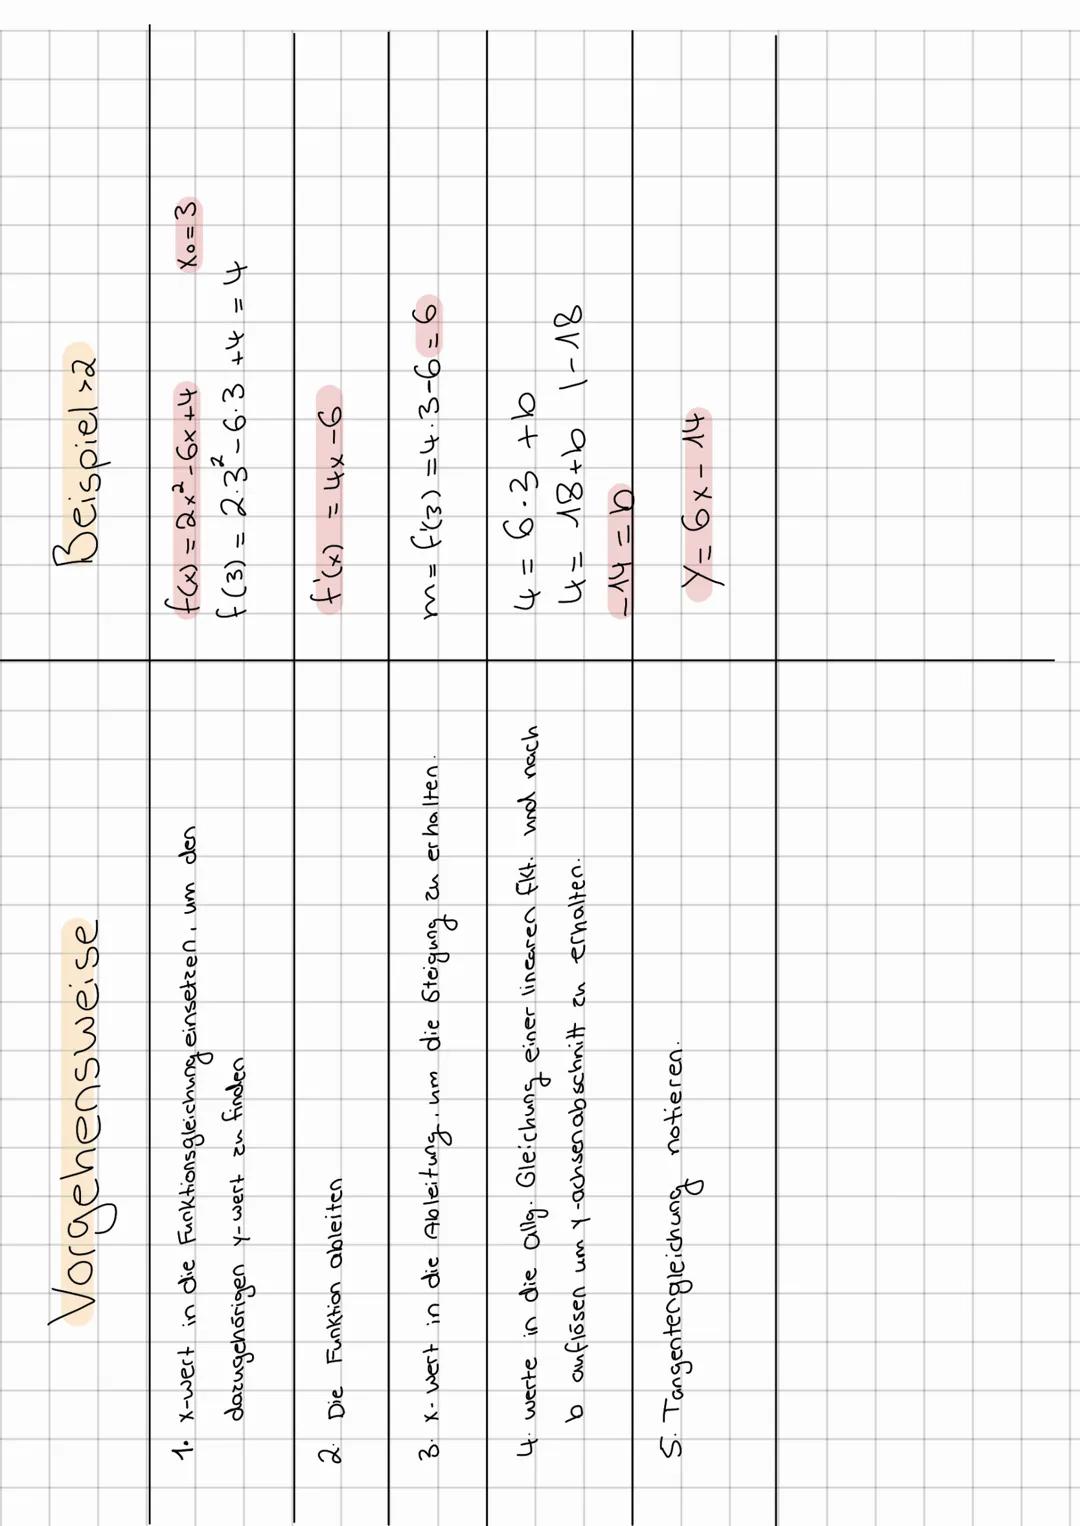 Vorgehensweise
Beispiel >2
1. x-wert in die Funktionsgleichung einsetzen, um den
dazugehörigen y-wert zu finden
f(x) = 2x² -6x +4 x₀=3
f(3) = 2·3² -6·3 +4 = 4
2. Die Funktion ableiten
f'(x) = 4x -6
3. x-wert in die Ableitung, um die Steigung zu erhalten.
m = f'(3) = 4·3-6 = 6
4. werte in die allg. Gleichung einer linearen fkt. und nach
b auflösen um y-achsenabschnitt zu erhalten.
4 = 6·3 +b
4 = 18+b |-18
-14 = b
5. Tangentengleichung notieren.
y = 6x - 14